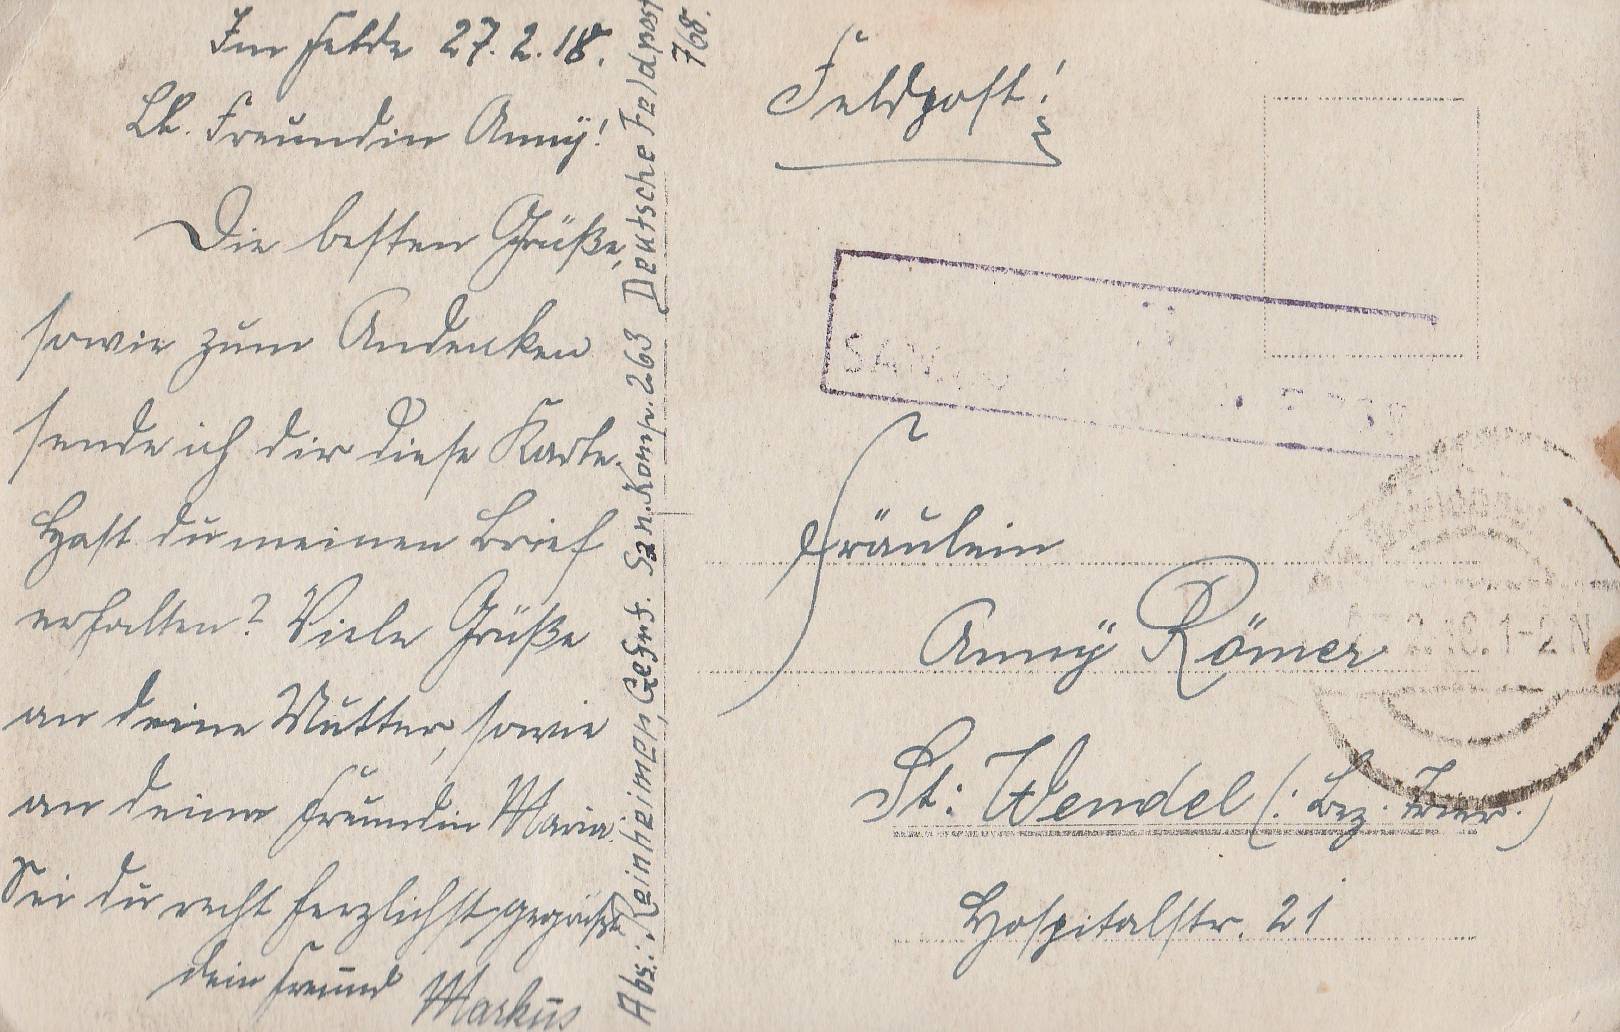 Im Felde 27.2.18.
Lb. Freundin Anny!
Die besten Grüße,
sowie zum Andenken
sende ich dir diese Karte.
Hast du meinen Brief
erhalten? Viele Grüße
an deine Mutter, sowie
an deine Freundin Maria.
Sei du recht herzlichst gegrüßt
dein Freund Markus
Abs.: Reinheimer, Gefrt. San. Komp. 263 Deutsche Feldpost
768.
Feldpost!
SAN.
Fräulein
Anny Römer
St. Wendel (: Bez. Trier.)
Hospitalstr. 21
2.18.1-2N